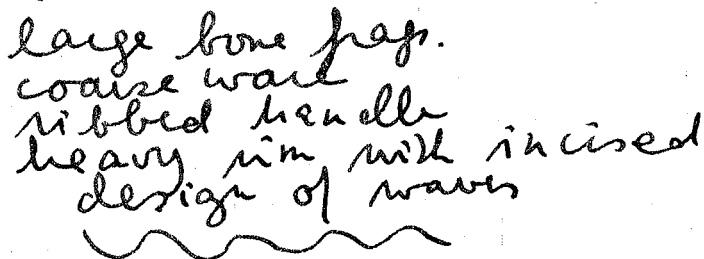 large bone frags.
coarse ware
ribbed handle
heavy rim with incised
design of waves